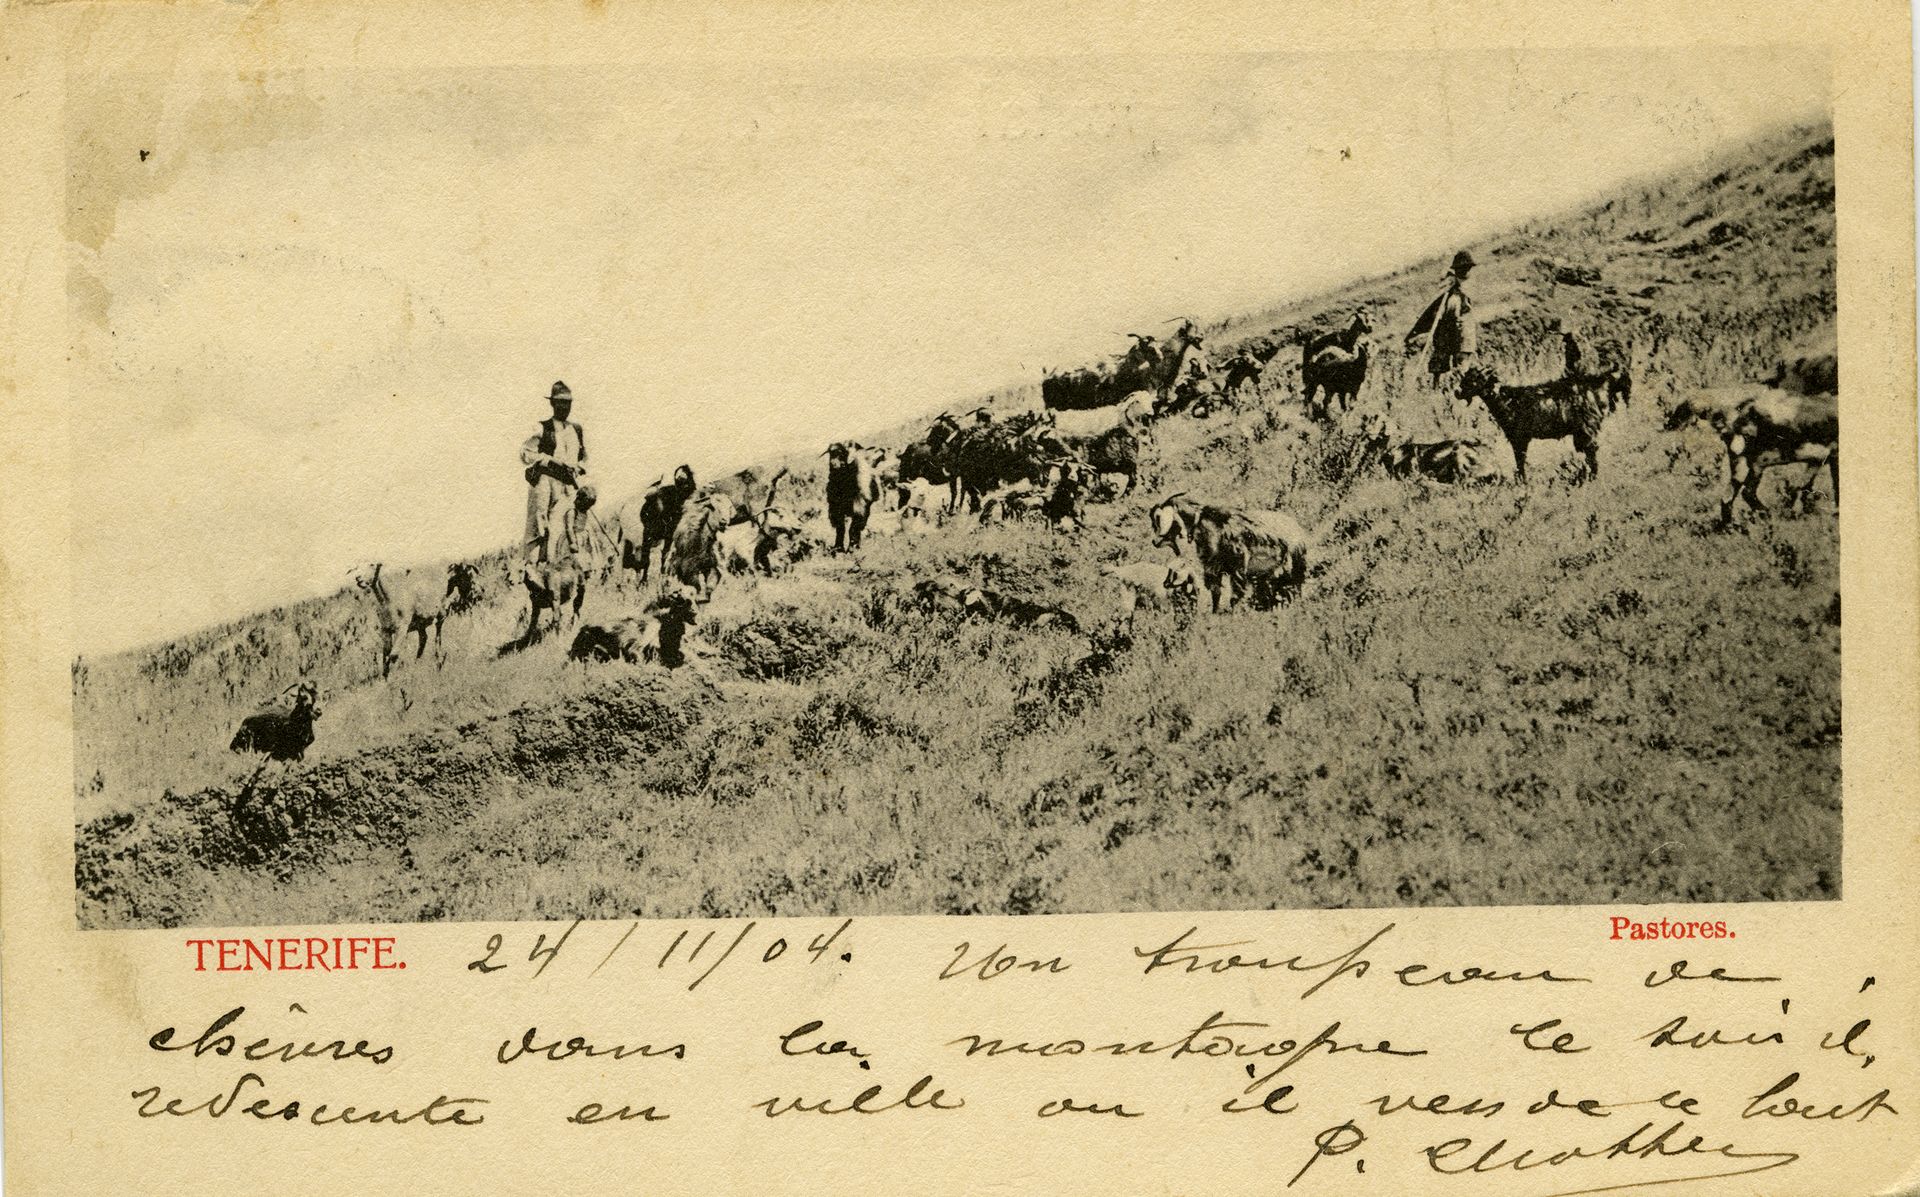 TENERIFE. 24/11/04. Un troupeau de
Pastores.
chèvres dans la montagne le soir il
redescente en ville ou il vende le lait
P.